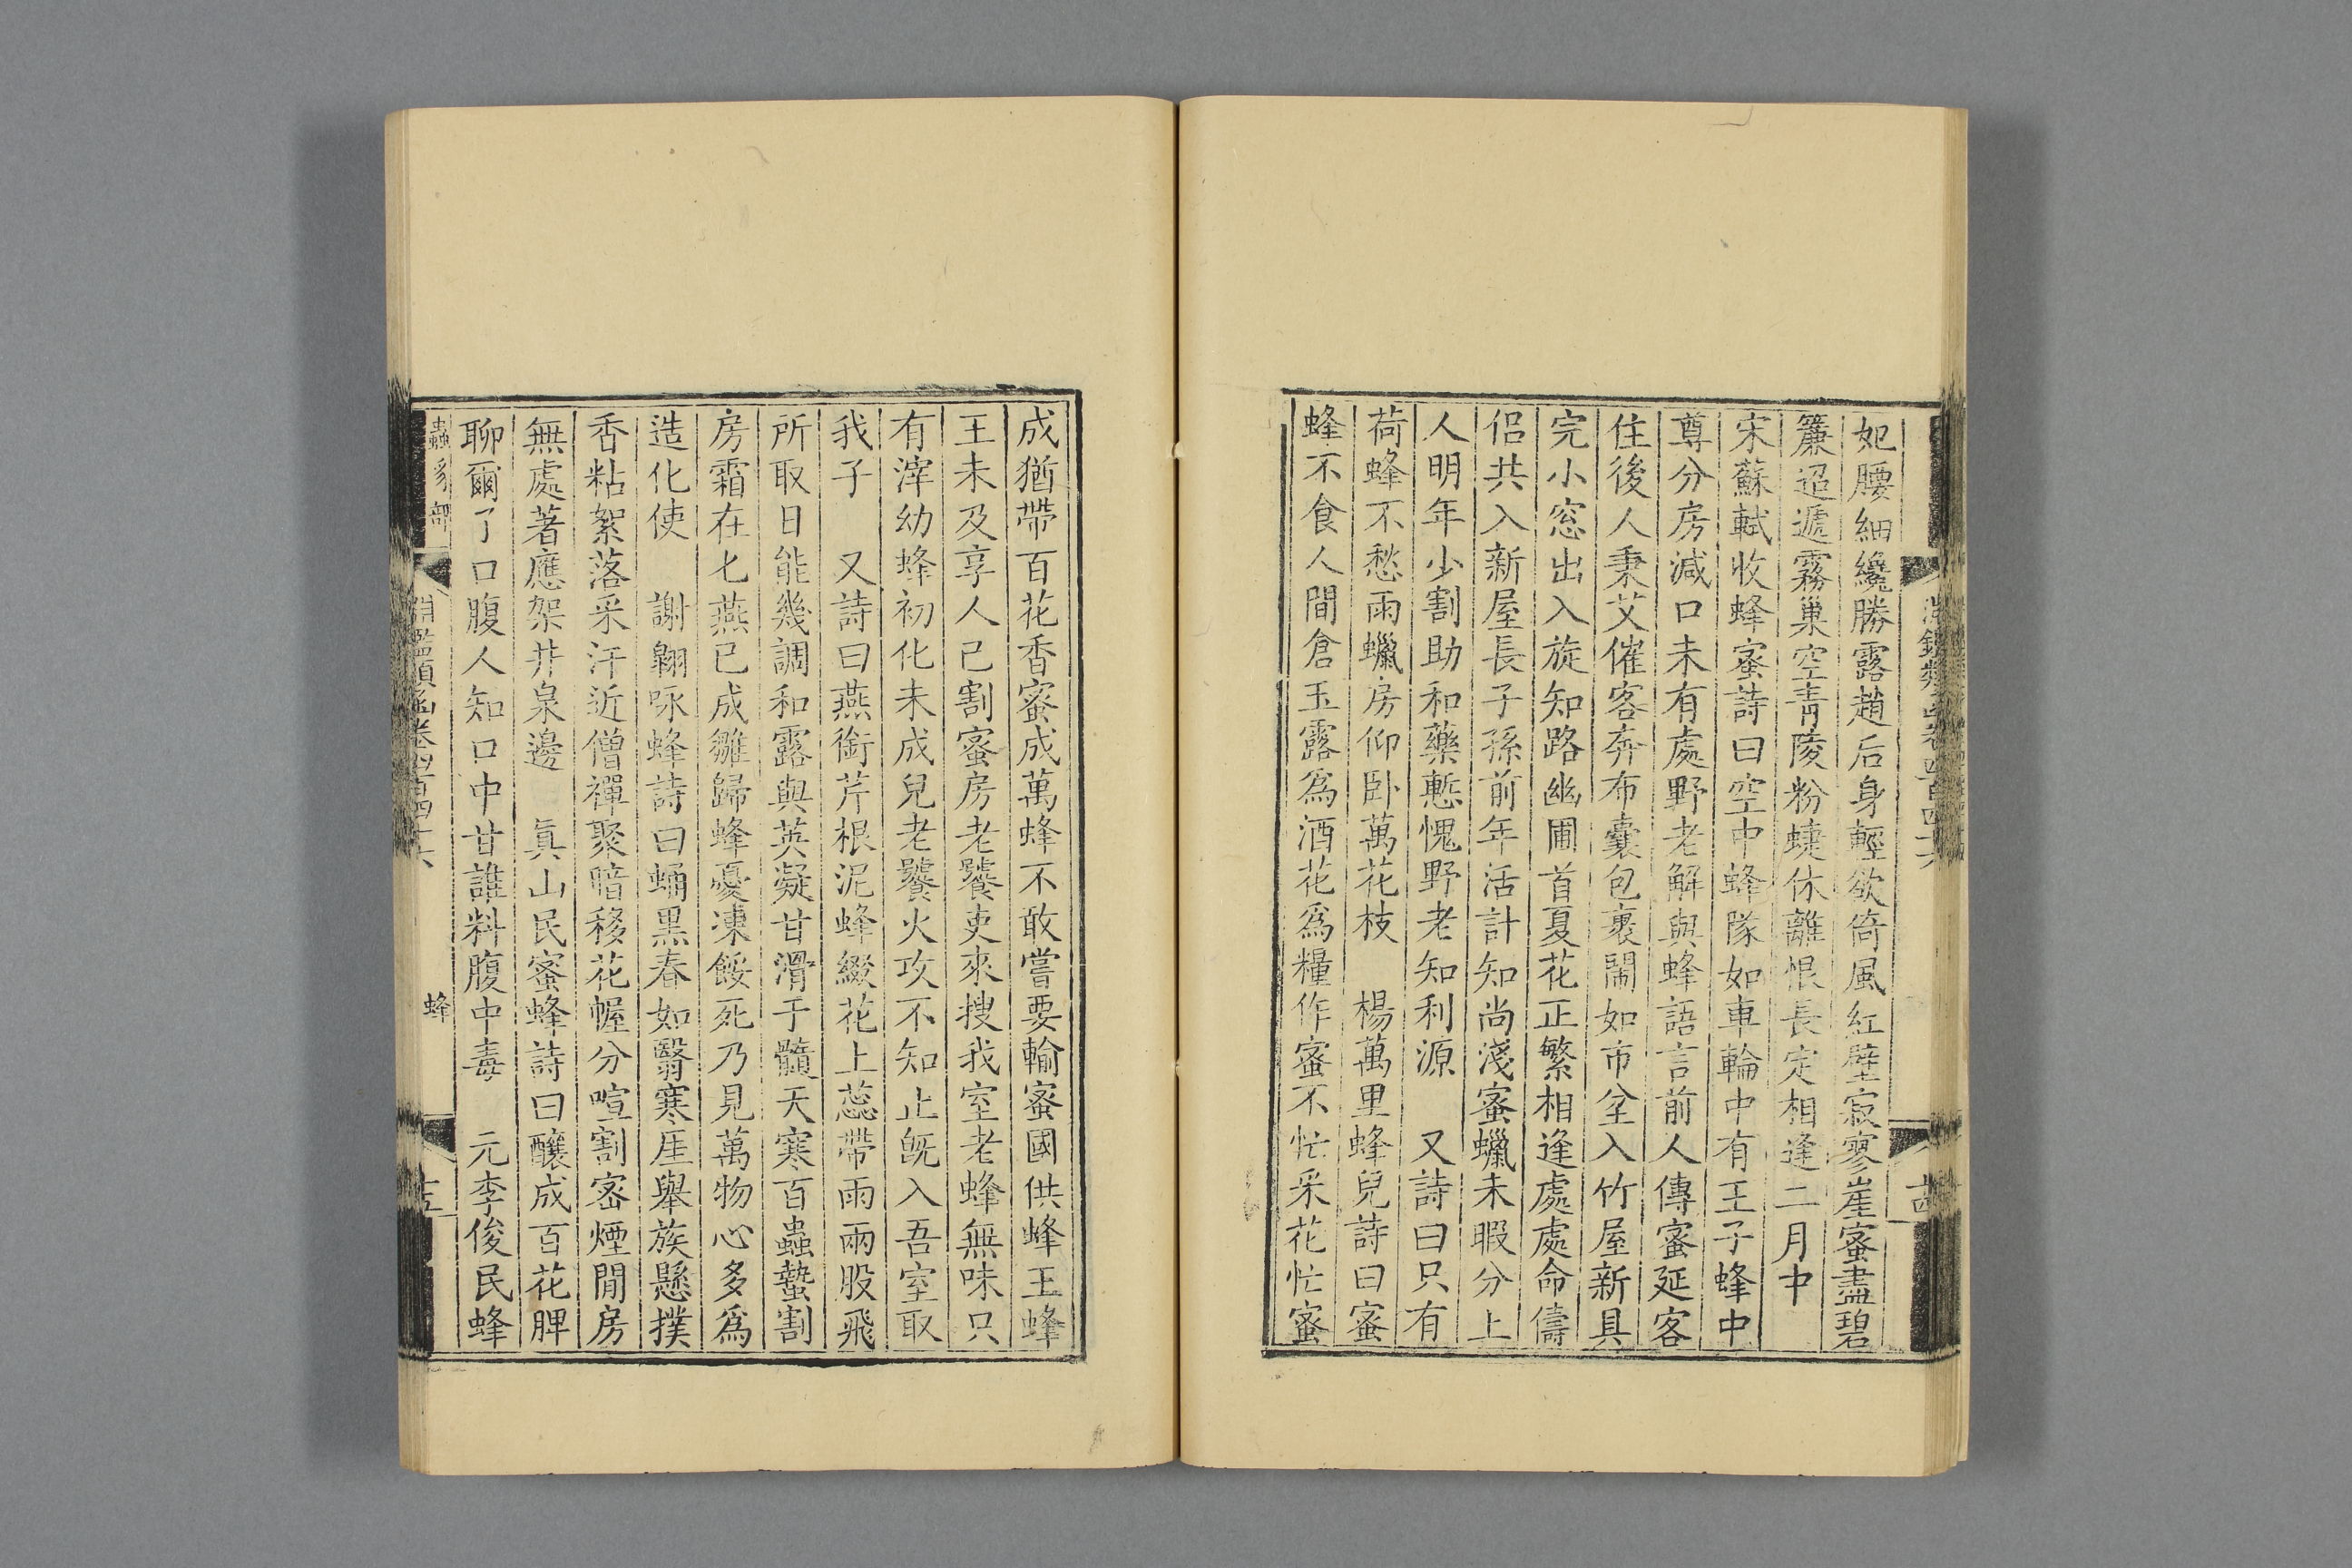 妃腰細纔勝露趙后身輕欲倚風紅壁寂寥崖蜜盡碧
簷迢遞霧巢空青陵粉蜨休離恨長定相逢二月中
宋蘇軾收蜂蜜詩曰空中蜂隊如車輪中有王子蜂中
尊分房減口未有處野老解與蜂語言前人傳蜜延客
住後人秉艾催客奔布囊包裹鬧如市坌入竹屋新具
完小窓出入旋知路幽圃首夏花正繁相逢處處命儔
侣共入新屋長子孫前年活計知尚淺蜜蠟未暇分上
人明年少割助和藥慙愧野老知利源 又詩曰只有
荷蜂不愁雨蠟房仰卧萬花枝 楊萬里蜂兒詩曰蜜
蜂不食人間倉玉露為酒花為糧作蜜不忙采花忙蜜
成猶帶百花香蜜成萬蜂不敢嘗要輸蜜國供蜂王蜂
王未及享人已割蜜房老饕吏來搜我室老蜂無味只
有滓幼蜂初化未成兒老饕火攻不知止旣入吾室取
我子 又詩曰燕銜芹根泥蜂綴花上蕊帶雨兩股飛
所取日能幾調和露與英凝甘滑于髓天寒百蟲蟄割
房霜在匕燕已成雛歸蜂憂凍餒死乃見萬物心多為
造化使 謝翱咏蜂詩曰蛹黑春如翳寒厓舉族懸撲
香粘絮落采汗近僧禪聚暗移花幄分喧割密煙閒房
無處著應架井泉邊 真山民蜜蜂詩曰釀成百花脾
聊爾了口腹人知口中甘誰料腹中毒 元李俊民蜂
蟲豸部 淵鑑類函卷四百四十六 蜂 十五